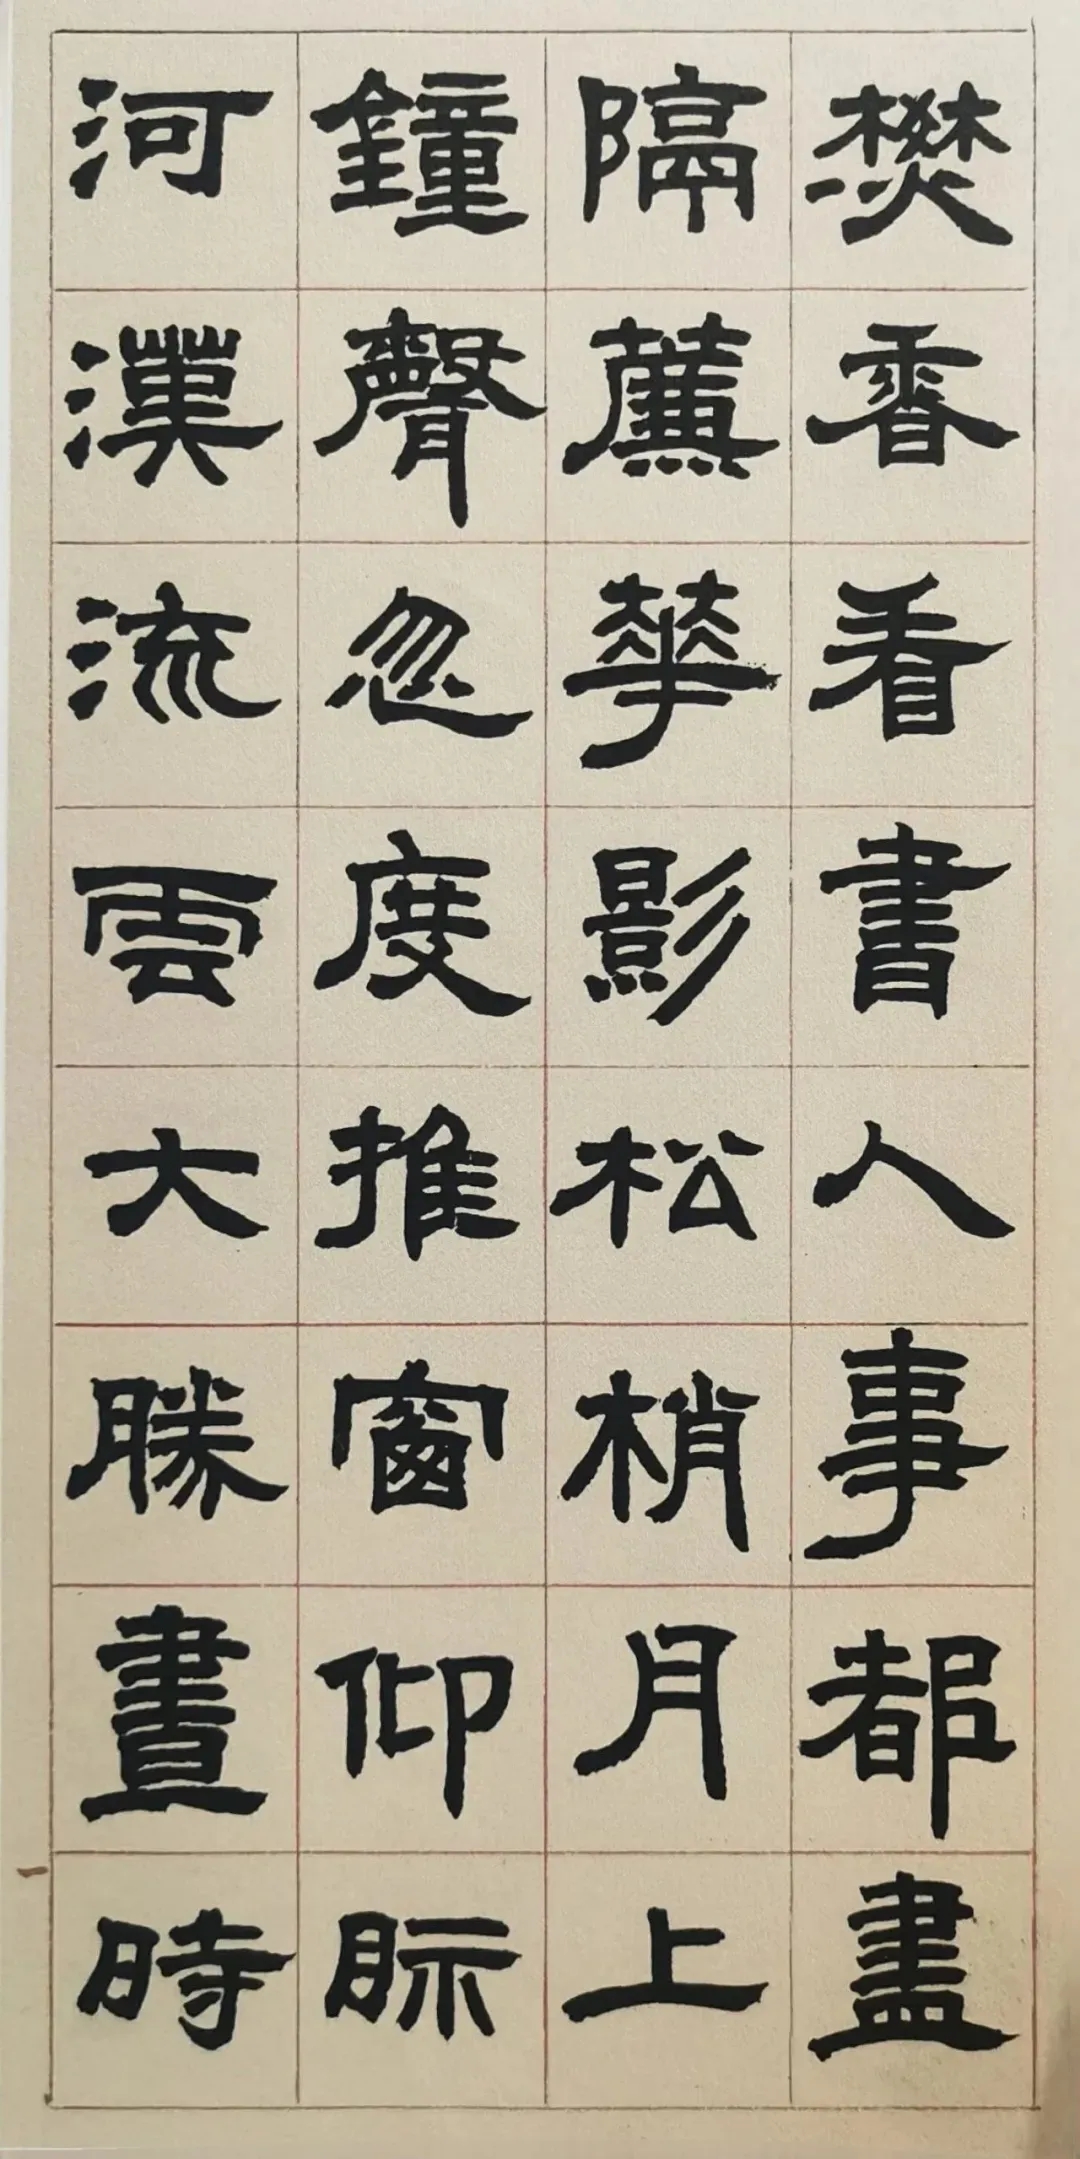 樊香看書人事都盡
隔薕華影松梢月上
鐘聲忽度推窗仰眎
河漢流雲大勝晝時